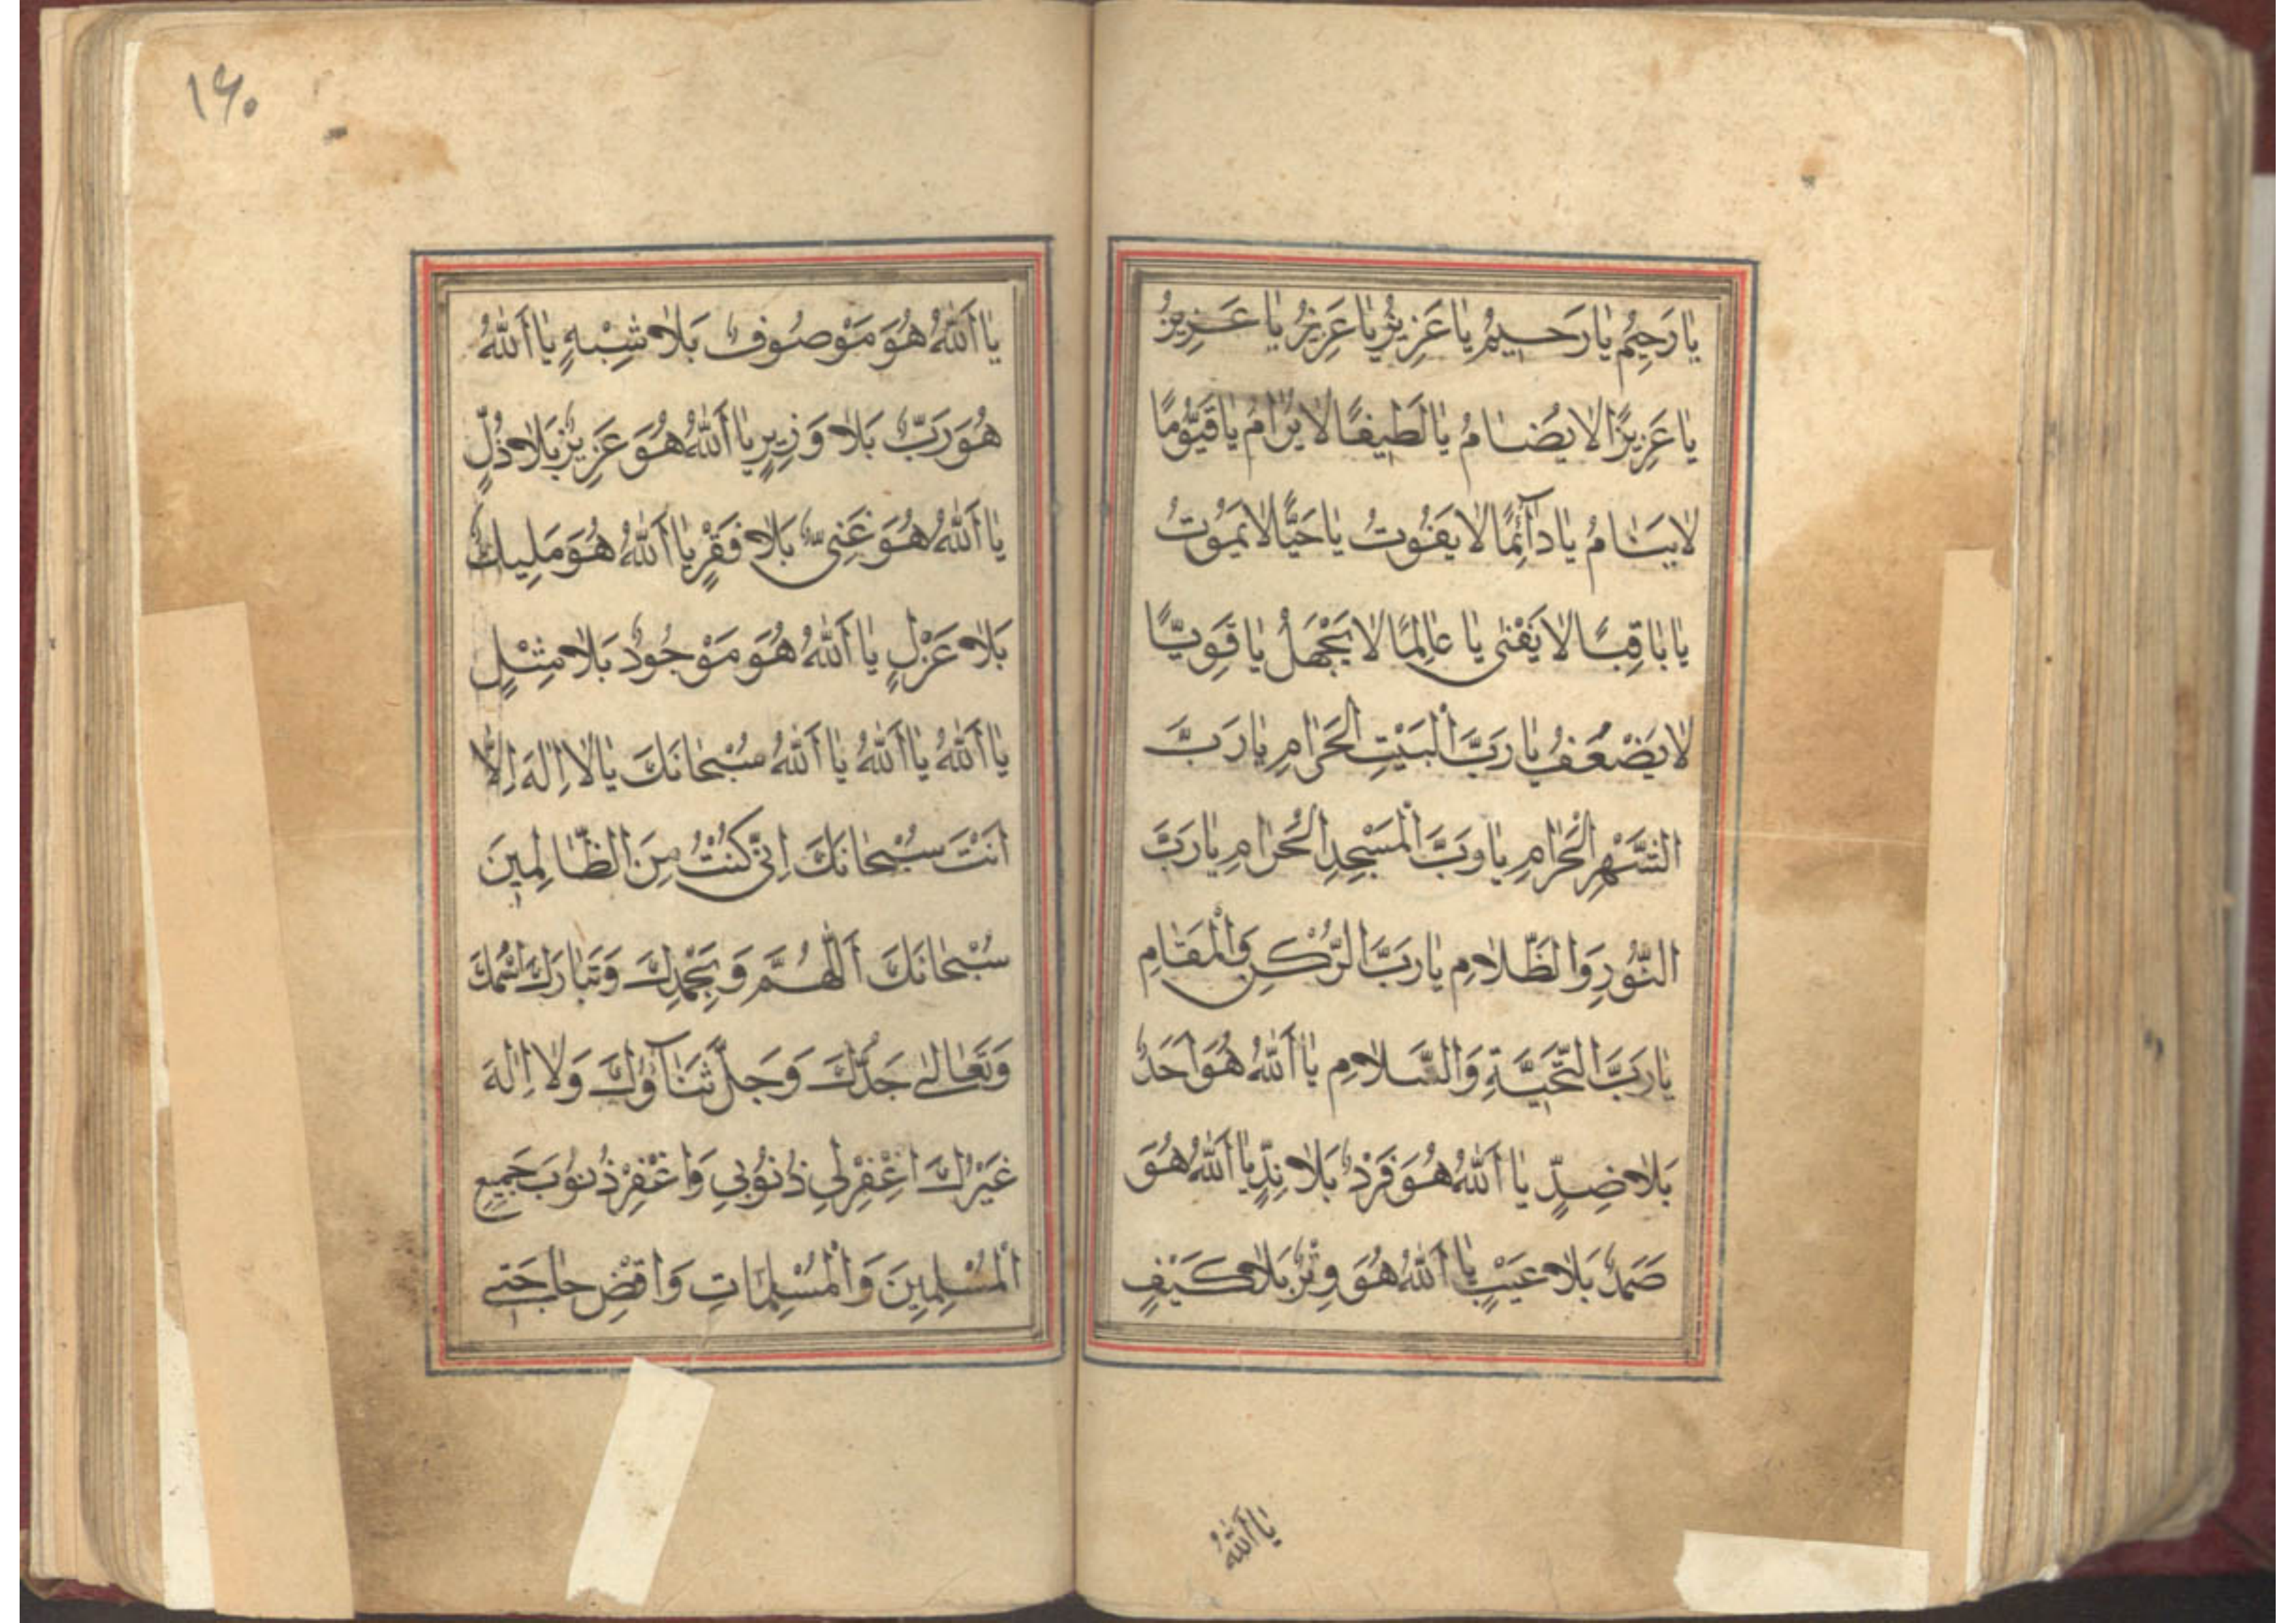 يا رَحِيمُ يا رَحِيمُ يا عَزِيزُ يا عَزِيزُ يا عَزِيزُ
يا عَزِيزًا لا يُضامُ يا لَطِيفًا لا يُرامُ يا قَيُّومًا
لا يَنامُ يا دآئِمًا لا يَفُوتُ يا حَيًّا لا يَمُوتُ
يا باقِيًا لا يَفْنى يا عالِمًا لا يَجْهَلُ يا قَوِيًّا
لا يَضْعَفُ يا رَبَّ الْبَيْتِ الْحَرامِ يا رَبَّ
الشَّهْرِ الْحَرامِ يا رَبَّ الْمَسْجِدِ الْحَرامِ يا رَبَّ
النُّورِ وَالظَّلامِ يا رَبَّ الرُّكْنِ وَالْمَقامِ
يا رَبَّ التَّحِيَّةِ وَالسَّلامِ يا اَللهُ هُوَ اَحَدٌ
بَلا ضِدٍّ يا اَللهُ هُوَ فَرْدٌ بَلا نِدٍّ يا اَللهُ هُوَ
صَمَدٌ بَلا عَيْبٍ يا اَللهُ هُوَ وِتْرٌ بَلا كَيْفٍ
يا اَللهُ
١٦٠
يا اَللهُ هُوَ مَوْصُوفٌ بَلا شِبْهٍ يا اَللهُ
هُوَ رَبٌّ بَلا وَزِيرٍ يا اَللهُ هُوَ عَزِيزٌ بَلا ذُلٍّ
يا اَللهُ هُوَ غَنِيٌّ بَلا فَقْرٍ يا اَللهُ هُوَ مَلِيكٌ
بَلا عَزْلٍ يا اَللهُ هُوَ مَوْجُودٌ بَلا مِثْلٍ
يا اَللهُ يا اَللهُ يا اَللهُ سُبْحانَكَ يا لا اِلهَ اِلّا
اَنْتَ سُبْحانَكَ اِنّي كُنْتُ مِنَ الظّالِمِينَ
سُبْحانَكَ اَللّهُمَّ وَبِحَمْدِكَ وَتَبارَكَ اسْمُكَ
وَتَعالى جَدُّكَ وَجَلَّ ثَنآؤُكَ وَلا اِلهَ
غَيْرُكَ اغْفِرْلِي ذُنُوبِي وَاغْفِرْ ذُنُوبَ جَمِيعِ
الْمُسْلِمِينَ وَالْمُسْلِماتِ وَاقْضِ حاجَتِي